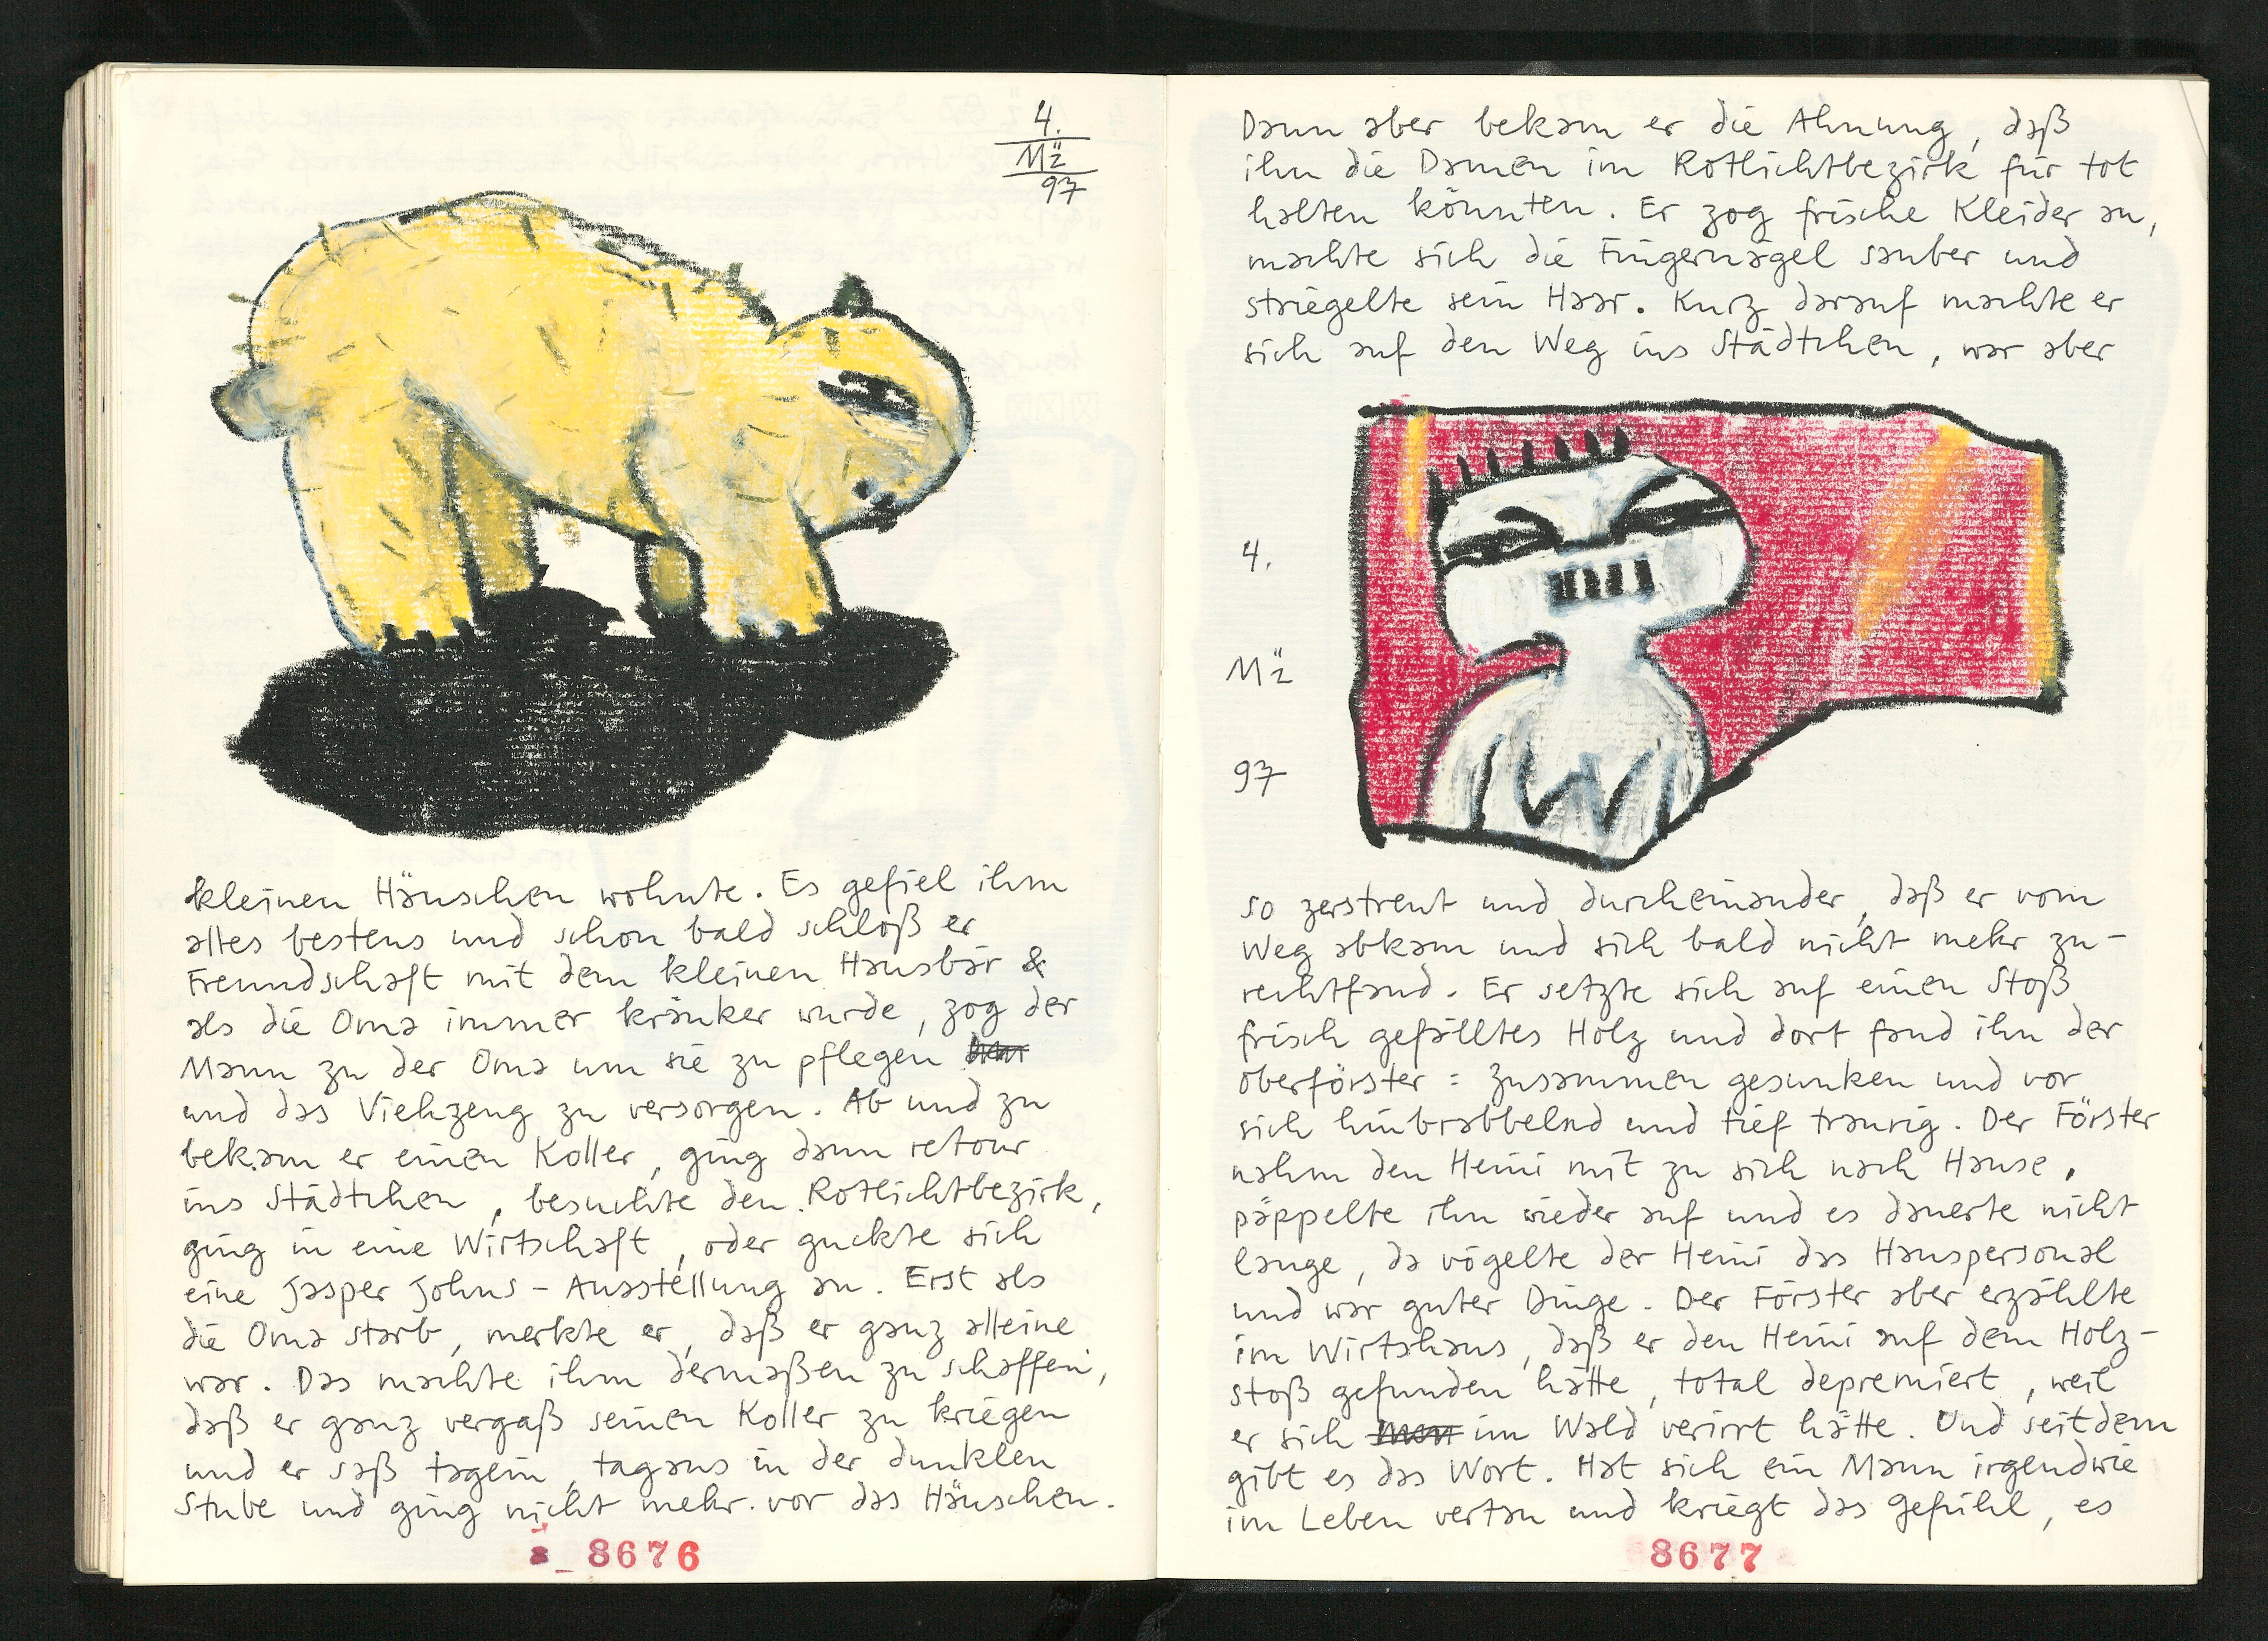 4.
Mz
97
kleinen Häuschen wohnte. Es gefiel ihm
alles bestens und schon bald schloß er
Freundschaft mit dem kleinen Hausbär &
als die Oma immer kränker wurde, zog der
Mann zu der Oma um sie zu pflegen
und das Viehzeug zu versorgen. Ab und zu
bekam er einen Koller, ging dann retour
ins Städtchen, besuchte den Rotlichtbezirk,
ging in eine Wirtschaft, oder guckte sich
eine Jasper Johns-Ausstellung an. Erst als
die Oma starb, merkte er, daß er ganz alleine
war. Das machte ihm dermaßen zu schaffen,
daß er ganz vergaß seinen Koller zu kriegen
und er saß tagein, tagaus in der dunklen
Stube und ging nicht mehr vor das Häuschen.
8676
Dann aber bekam er die Ahnung, daß
ihn die Damen im Rotlichtbezirk für tot
halten könnten. Er zog frische Kleider an,
machte sich die Fingernägel sauber und
striegelte sein Haar. Kurz darauf machte er
sich auf den Weg ins Städtchen, war aber
4.
Mz
97
so zerstreut und durcheinander, daß er vom
Weg abkam und sich bald nicht mehr zu-
rechtfand. Er setzte sich auf einen Stoß
frisch gefälltes Holz und dort fand ihn der
Oberförster: zusammen gesunken und vor
sich hinbrabbelnd und tief traurig. Der Förster
nahm den Heini mit zu sich nach Hause,
päppelte ihn wieder auf und es dauerte nicht
lange, da vögelte der Heini das Hauspersonal
und war guter Dinge. Der Förster aber erzählte
im Wirtshaus, daß er den Heini auf dem Holz-
stoß gefunden hätte, total depremiert, weil
er sich im Wald verirrt hätte. Und seitdem
gibt es das Wort. Hat sich ein Mann irgendwie
im Leben vertan und kriegt das Gefühl, es
8677